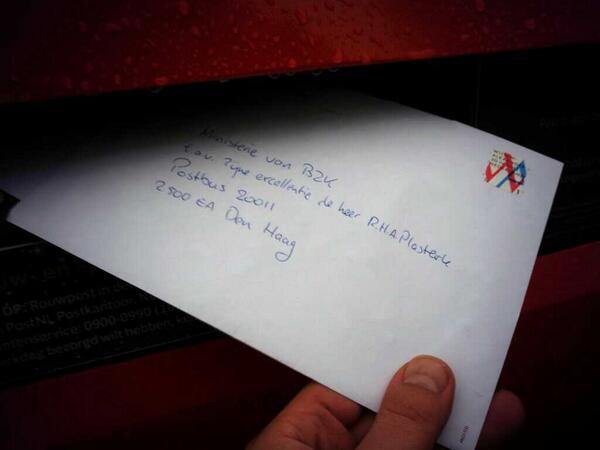 Ministerie van BZK
t.a.v. Zijne excellentie de heer R.H.A. Plasterk
Postbus 20011
2500 EA Den Haag
OP: Rouwpost in de
PostNL Postkantoor.
ntenservice: 0900-0990
rkdag bezorgd wilt hebben,